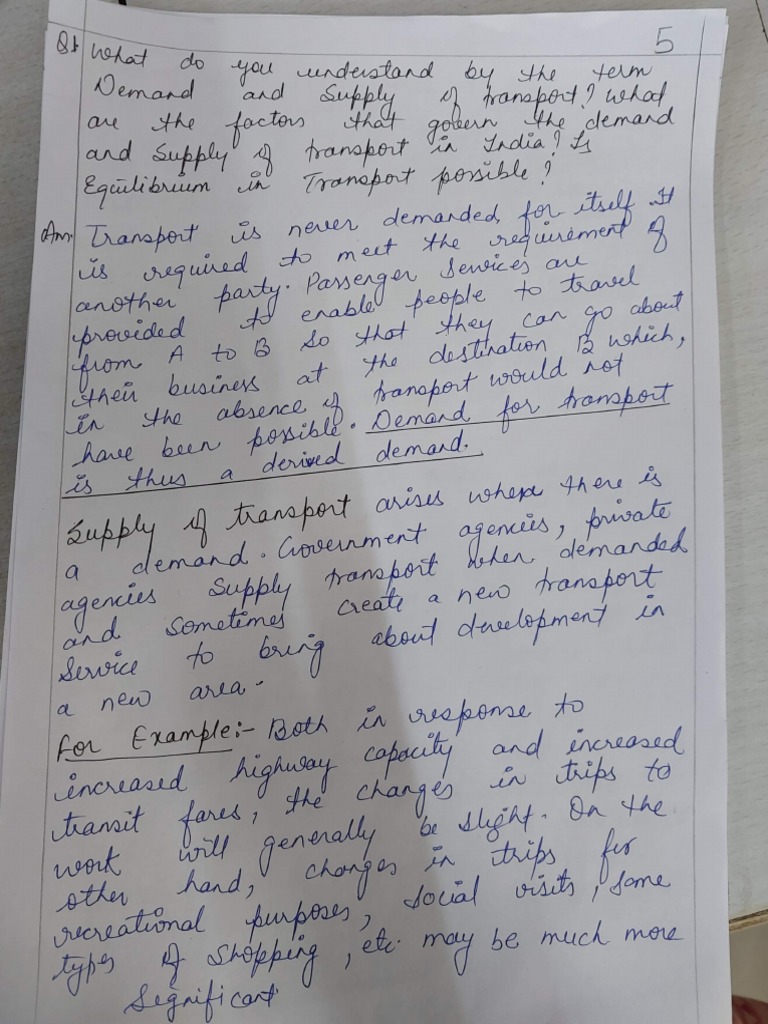 5
Q1 What do you understand by the term
Demand and Supply of transport? What
are the factors that govern the demand
and Supply of transport in India? Is
Equilibrium in Transport possible?
Ans. Transport is never demanded for itself It
is required to meet the requirement of
another party. Passenger Services are
provided to enable people to travel
from A to B so that they can go about
their business at the destination B which,
in the absence of transport would not
have been possible. Demand for transport
is thus a derived demand.
Supply of transport arises where there is
a demand. Government agencies, private
agencies Supply transport when demanded
and sometimes create a new transport
Service to bring about development in
a new area.
For Example:- Both in response to
increased highway capacity and increased
transit fares, the changes in trips to
work will generally be slight. On the
other hand, changes in trips for
recreational purposes, social visits, some
types of shopping, etc. may be much more
Significant